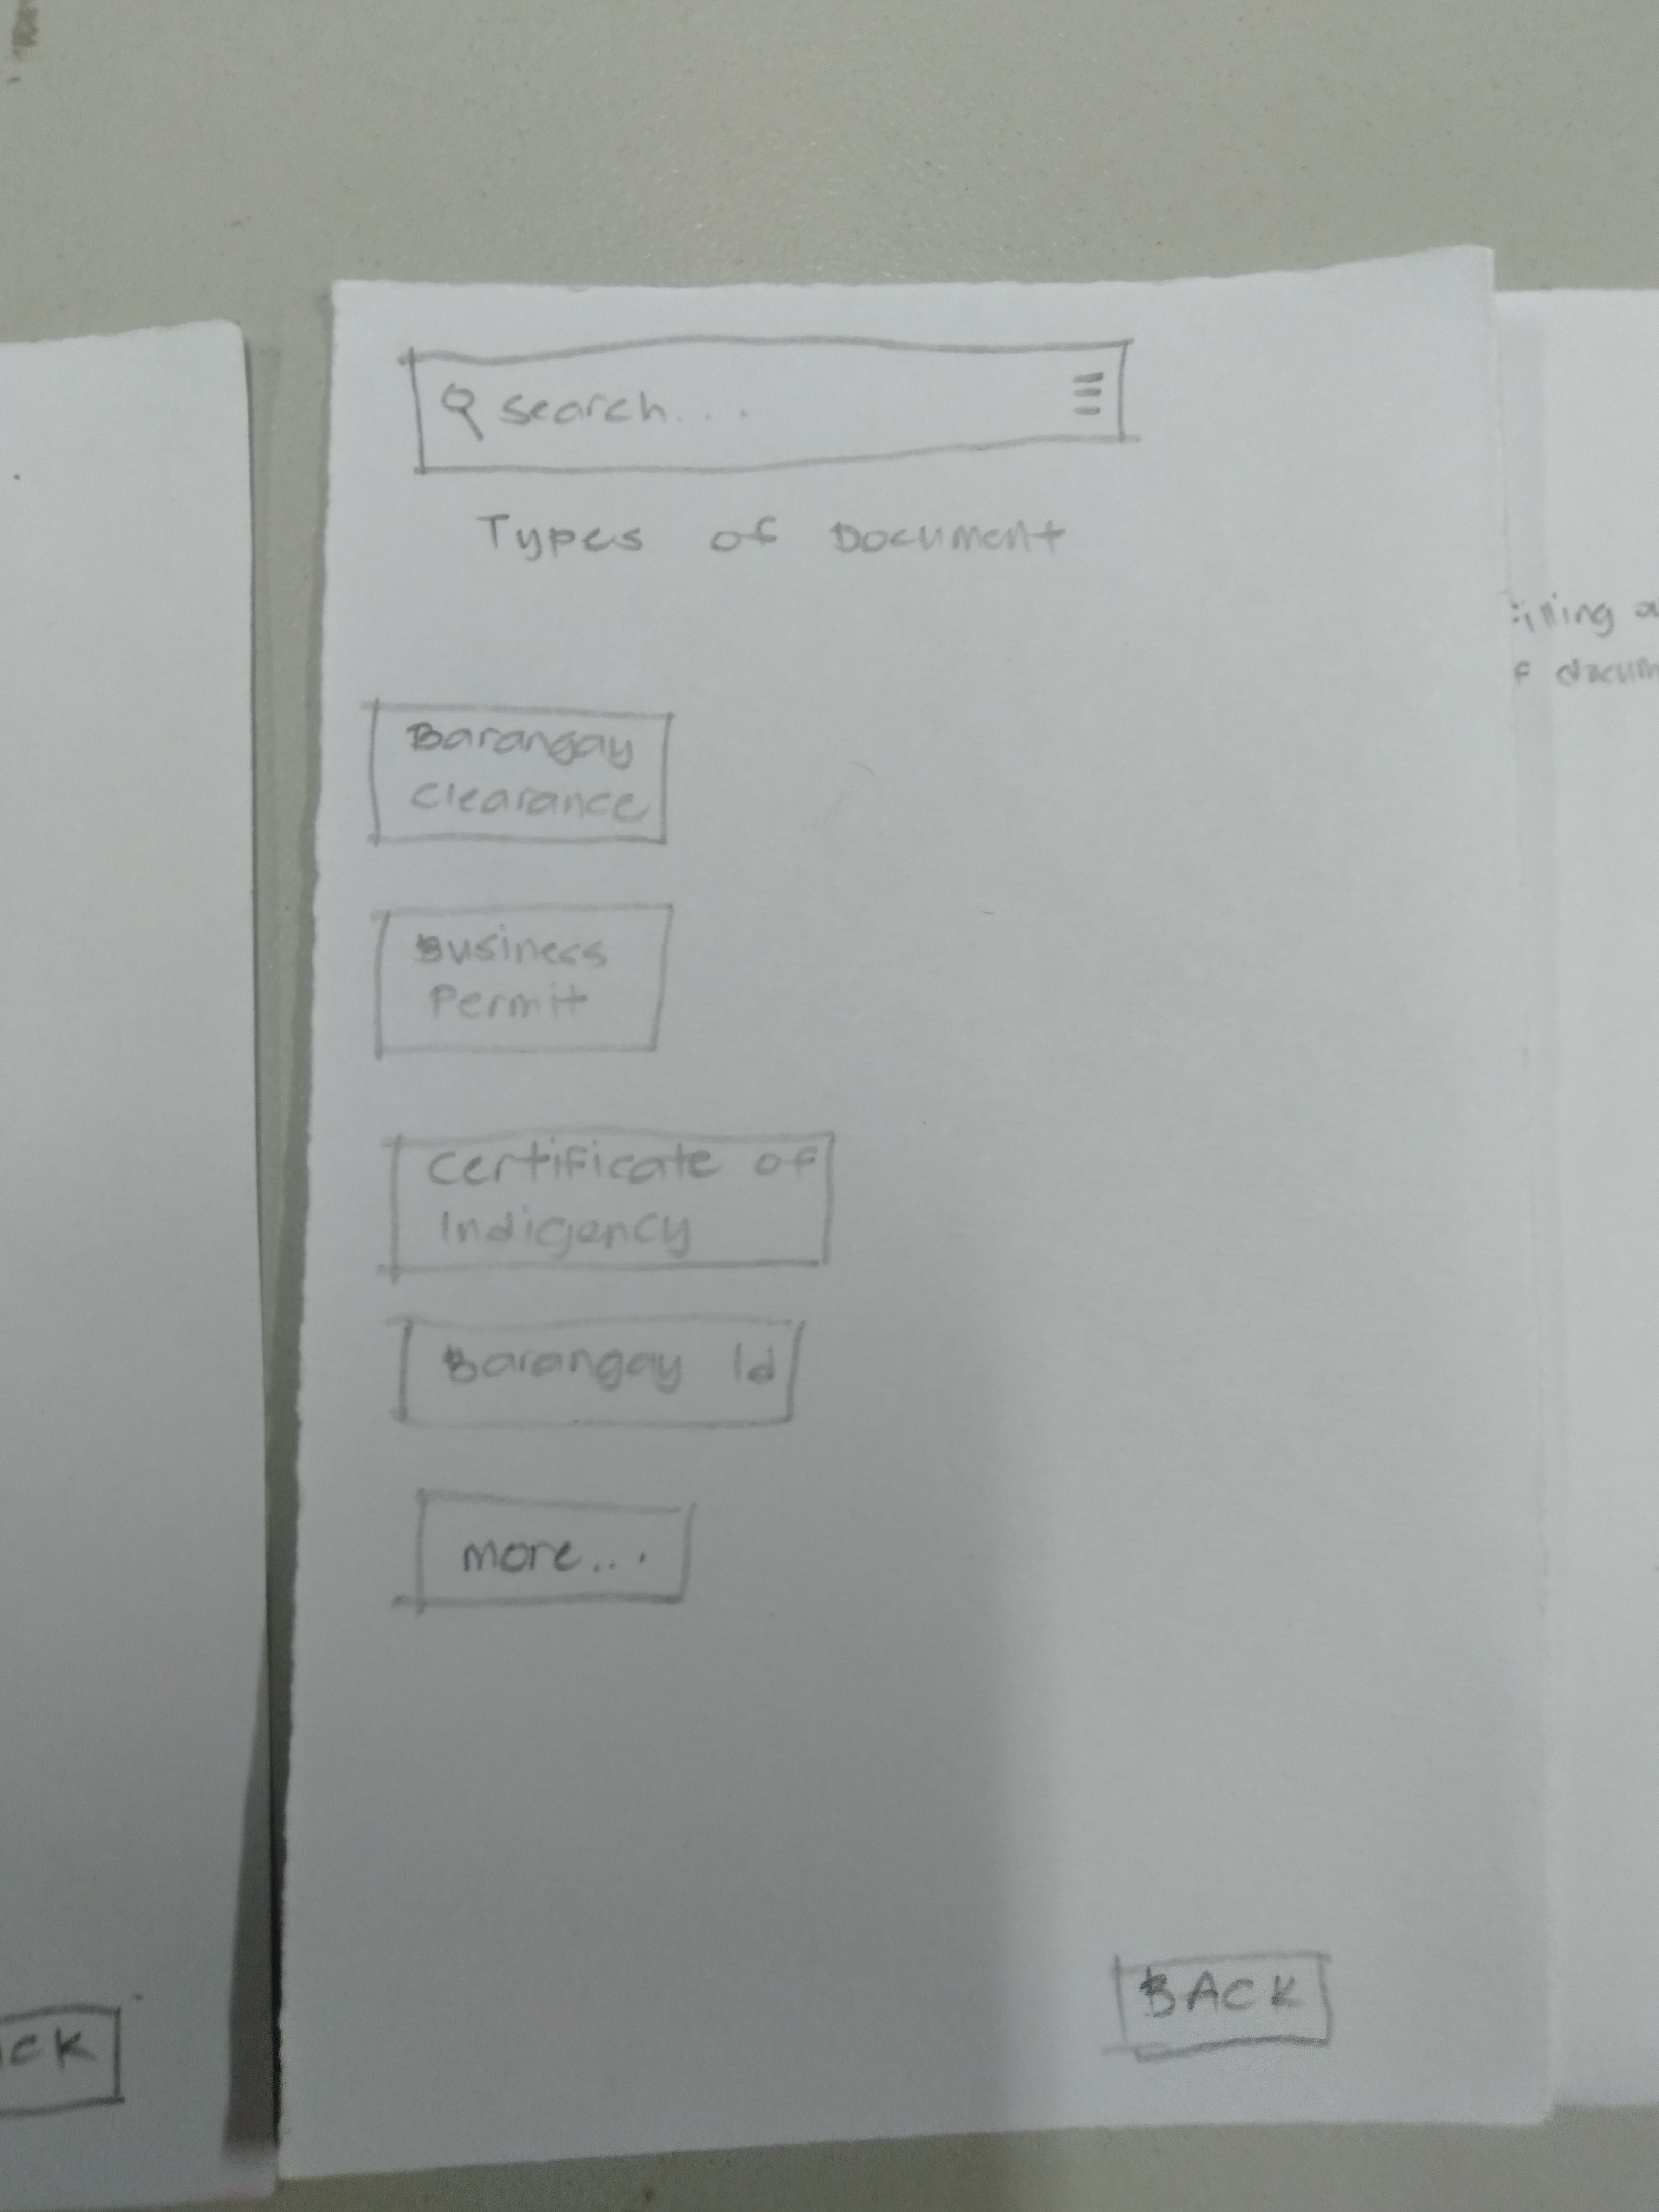 search...
Types of Document
Barangay
Clearance
Business
Permit
Certificate of
Indigency
Barangay Id
more...
BACK